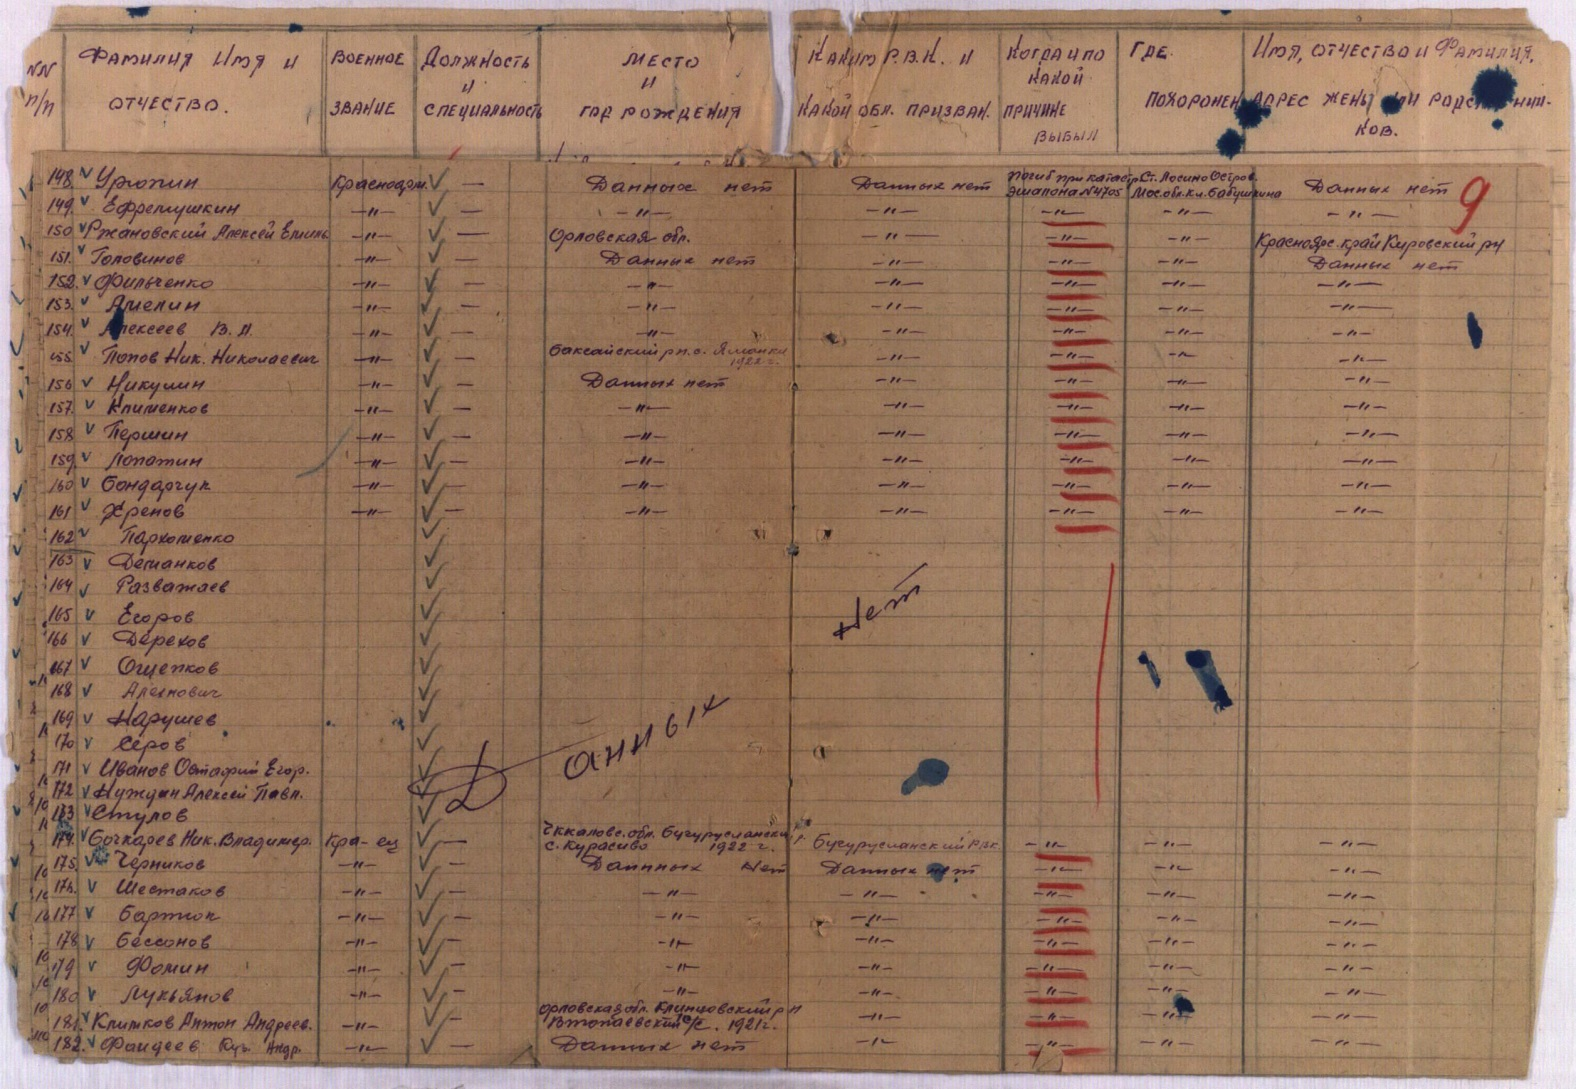 NN п/п Фамилия Имя и отчество. Военное звание Должность и специальность Место и год рождения Каким Р.В.К. и какой обл. призван. Когда и по какой причине выбыл Где похоронен Имя, отчество и Фамилия, адрес жены или родственников.
9
148. Урюпин Красноарм. — Данных нет Данных нет Погиб при катастр. эшалона N4705 Ст. Лосино Остров. Мос. обл. кл. Бабушкина Данных нет
149. Ефремушкин —"— — —"— —"— —"— —"— —"—
150 Ржановский Алексей Емиль —"— — Орловская обл. —"— —"— —"— Краснояр. край Кировский рн
151. Головинов —"— — Данных нет —"— —"— —"— Данных нет
152. Фильченко —"— — —"— —"— —"— —"— —"—
153. Амелин —"— — —"— —"— —"— —"— —"—
154. Алексеев В. Л. —"— — —"— —"— —"— —"— —"—
155. Попов Ник. Николаевич —"— — Баксайский рн. с. Яманка 1922 г. —"— —"— —"— —"—
156 Никулин —"— — Данных нет —"— —"— —"— —"—
157. Клименков —"— — —"— —"— —"— —"— —"—
158 Першин —"— — —"— —"— —"— —"— —"—
159. Лопатин —"— — —"— —"— —"— —"— —"—
160 Бондарчук —"— — —"— —"— —"— —"— —"—
161 Хренов —"— — —"— —"— —"— —"— —"—
162 Пархоменко
163 Деманков
164 Разважаев
165 Егоров
166 Дерехов
167 Ощепков
168
169 Нарушев
170 Серов
171 Иванов Евстафий Егор.
172 Нуждин Алексей Павл.
173 Стулов
Данных нет
174. Бочкарев Ник. Владимир. Кра-ец — Чккаловс. обл. Бугурусланский р. с. Курасиво 1922 г. Бугурусланский Рвк. —"— —"— —"—
175. Черников —"— — Даннных нет Данных нет —"— —"— —"—
176. Шестаков —"— — —"— —"— —"— —"— —"—
177 Бартюк —"— — —"— —"— —"— —"— —"—
178 Бессонов —"— — —"— —"— —"— —"— —"—
179 Фомин —"— — —"— —"— —"— —"— —"—
180 Лукьянов —"— — —"— —"— —"— —"— —"—
181. Климков Антон Андреев. —"— — Орловская обл. Клинцовский р н с/с. 1921г. —"— —"— —"— —"—
182. Фандеев Куз. Андр. —"— — Данных нет —"— —"— —"— —"—